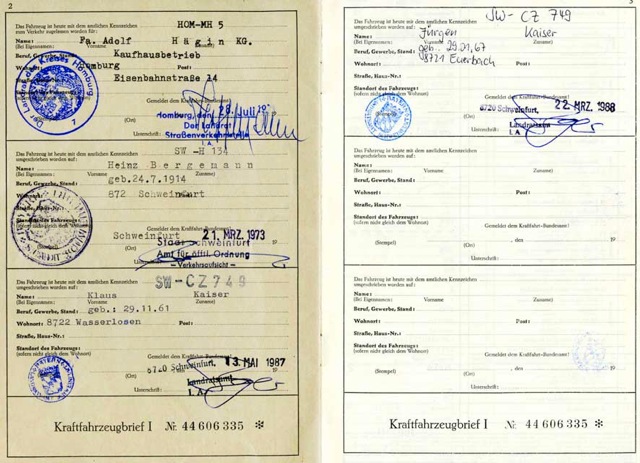 2
Das Fahrzeug ist heute mit dem amtlichen Kennzeichen HOM-MH 5
zum Verkehr zugelassen worden für:
Name: Fa. Adolf Hägin KG.
(Bei Eigennamen: Vorname Zuname)
Beruf, Gewerbe, Stand: Kaufhausbetrieb
Wohnort: Homburg Post:
Straße, Haus-Nr.: Eisenbahnstraße 14
Standort des Fahrzeugs:
(sofern nicht gleich dem Wohnort)
Gemeldet dem Kraftfahrt-Bundesamt
Der Landrat des Kreises Homburg
7
Homburg, den 28. Juli 19
(Ort)
Der Landrat
Straßenverkehrsstelle
Unterschrift: I. A.
Das Fahrzeug ist heute mit dem amtlichen Kennzeichen SW -H 134
umgeschrieben worden auf:
Name: Heinz Bergemann
(Bei Eigennamen: Vorname Zuname)
Beruf, Gewerbe, Stand: geb.24.7.1914
Wohnort: 872 Schweinfurt
Straße, Haus-Nr.:
Standort des Fahrzeugs:
(sofern nicht gleich dem Wohnort)
Gemeldet dem Kraftfahrt-Bundesamt
Schweinfurt 21. MRZ. 1973
(Stempel) (Ort)
Stadt Schweinfurt
Amt für öfftl. Ordnung
- Verkehrsaufsicht -
Das Fahrzeug ist heute mit dem amtlichen Kennzeichen SW-CZ 749
umgeschrieben worden auf:
Name: Klaus Kaiser
(Bei Eigennamen: Vorname Zuname)
Beruf, Gewerbe, Stand: geb.: 29.11.61
Wohnort: 8722 Wasserlosen Post:
Straße, Haus-Nr.:
Standort des Fahrzeugs:
(sofern nicht gleich dem Wohnort)
Gemeldet dem Kraftfahrt-Bundesamt
8720 Schweinfurt, 13. MAI 1987
(Ort)
Landratsamt
Unterschrift: I. A.
Kraftfahrzeugbrief I Nr. 44606335 ✻
3
Das Fahrzeug ist heute mit dem amtlichen Kennzeichen SW-CZ 749
umgeschrieben worden auf:
Name: Jürgen Kaiser
(Bei Eigennamen: Vorname Zuname)
Beruf, Gewerbe, Stand: geb. 29.01.67
Wohnort: 8721 Euerbach
Straße, Haus-Nr.:
Standort des Fahrzeugs:
(sofern nicht gleich dem Wohnort)
Gemeldet dem Kraftfahrt-Bundesamt
8720 Schweinfurt, 22. MRZ. 1988
(Ort)
Landratsamt
Unterschrift: I. A.
Das Fahrzeug ist heute mit dem amtlichen Kennzeichen
umgeschrieben worden auf:
Name:
(Bei Eigennamen: Vorname Zuname)
Beruf, Gewerbe, Stand:
Wohnort: Post:
Straße, Haus-Nr.:
Standort des Fahrzeugs:
(sofern nicht gleich dem Wohnort)
Gemeldet dem Kraftfahrt-Bundesamt
, den 19
(Stempel) (Ort)
Unterschrift:
Das Fahrzeug ist heute mit dem amtlichen Kennzeichen
umgeschrieben worden auf:
Name:
(Bei Eigennamen: Vorname Zuname)
Beruf, Gewerbe, Stand:
Wohnort: Post:
Straße, Haus-Nr.:
Standort des Fahrzeugs:
(sofern nicht gleich dem Wohnort)
Gemeldet dem Kraftfahrt-Bundesamt
, den 19
(Stempel) (Ort)
Unterschrift:
Kraftfahrzeugbrief I Nr. 44606335 ✻